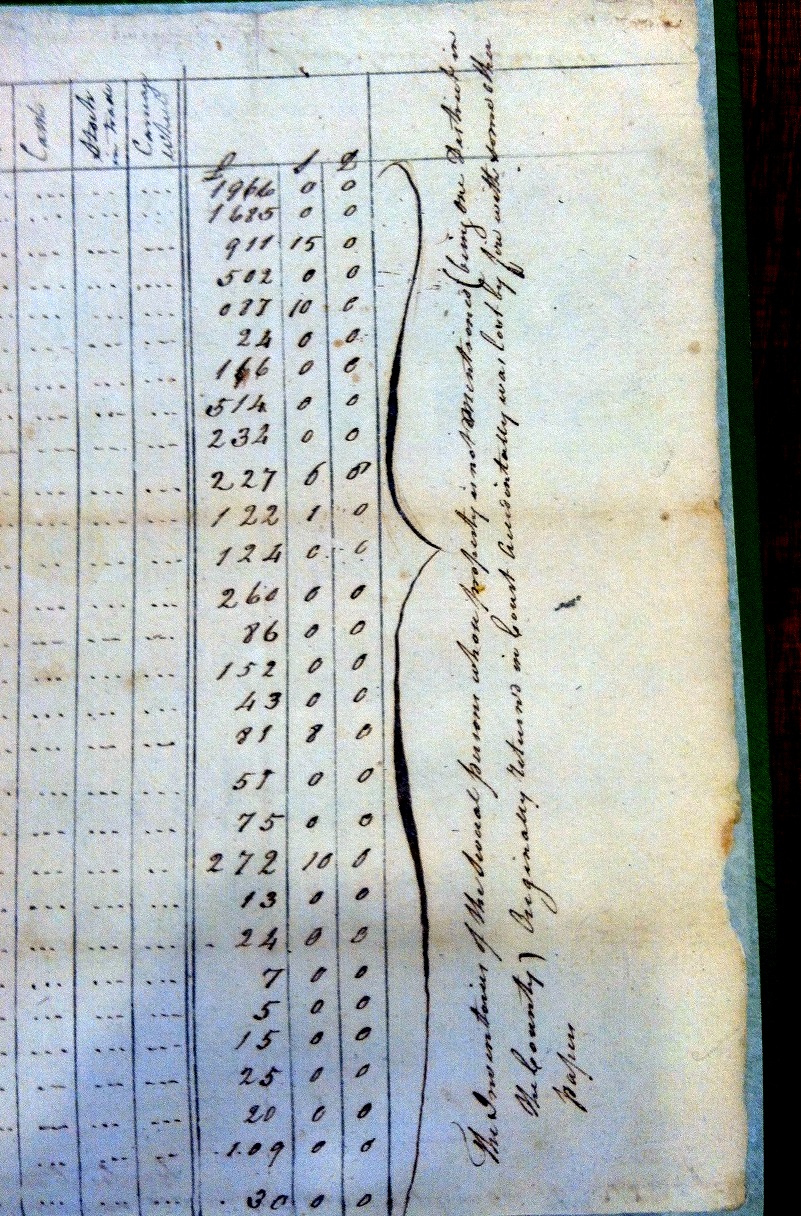 Cash
Stock
in trade
Carriage
Wheels
£ S D
1966 0 0
1685 0 0
911 15 0
502 0 0
087 10 0
24 0 0
166 0 0
514 0 0
234 0 0
227 6 0
122 1 0
124 0 0
260 0 0
86 0 0
152 0 0
43 0 0
81 8 0
51 0 0
75 0 0
272 10 0
13 0 0
24 0 0
7 0 0
5 0 0
15 0 0
25 0 0
20 0 0
109 0 0
30 0 0
The Inventories of the Several persons whose property is not mentioned (being one District in
the County) Originally returned in Court Accidentally was lost by fire with some other
papers